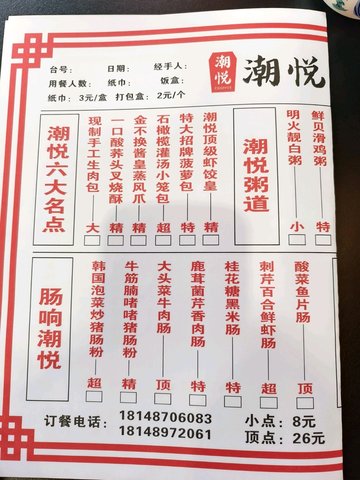 台号： 日期： 经手人：
用餐人数： 纸巾： 饭盒：
纸巾：3元/盒 打包盒：2元/个
潮悦
潮悦
潮悦六大名点
现制手工生肉包——大
一口酸荞头叉烧酥——精
金不换酱皇蒸凤爪——精
石橄榄灌汤小笼包——超
特大招牌菠萝包——特
潮悦顶级虾饺皇——精
潮悦粥道
明火靓白粥——小
鲜贝滑鸡粥——特
肠响潮悦
韩国泡菜炒猪肠粉——超
牛筋腩啫啫猪肠粉——精
大头菜牛肉肠——顶
鹿茸菌芹香肉肠——特
桂花糖黑米肠——特
刺芹百合鲜虾肠——超
酸菜鱼片肠——顶
订餐电话：18148706083
18148972061
小点：8元
顶点：26元